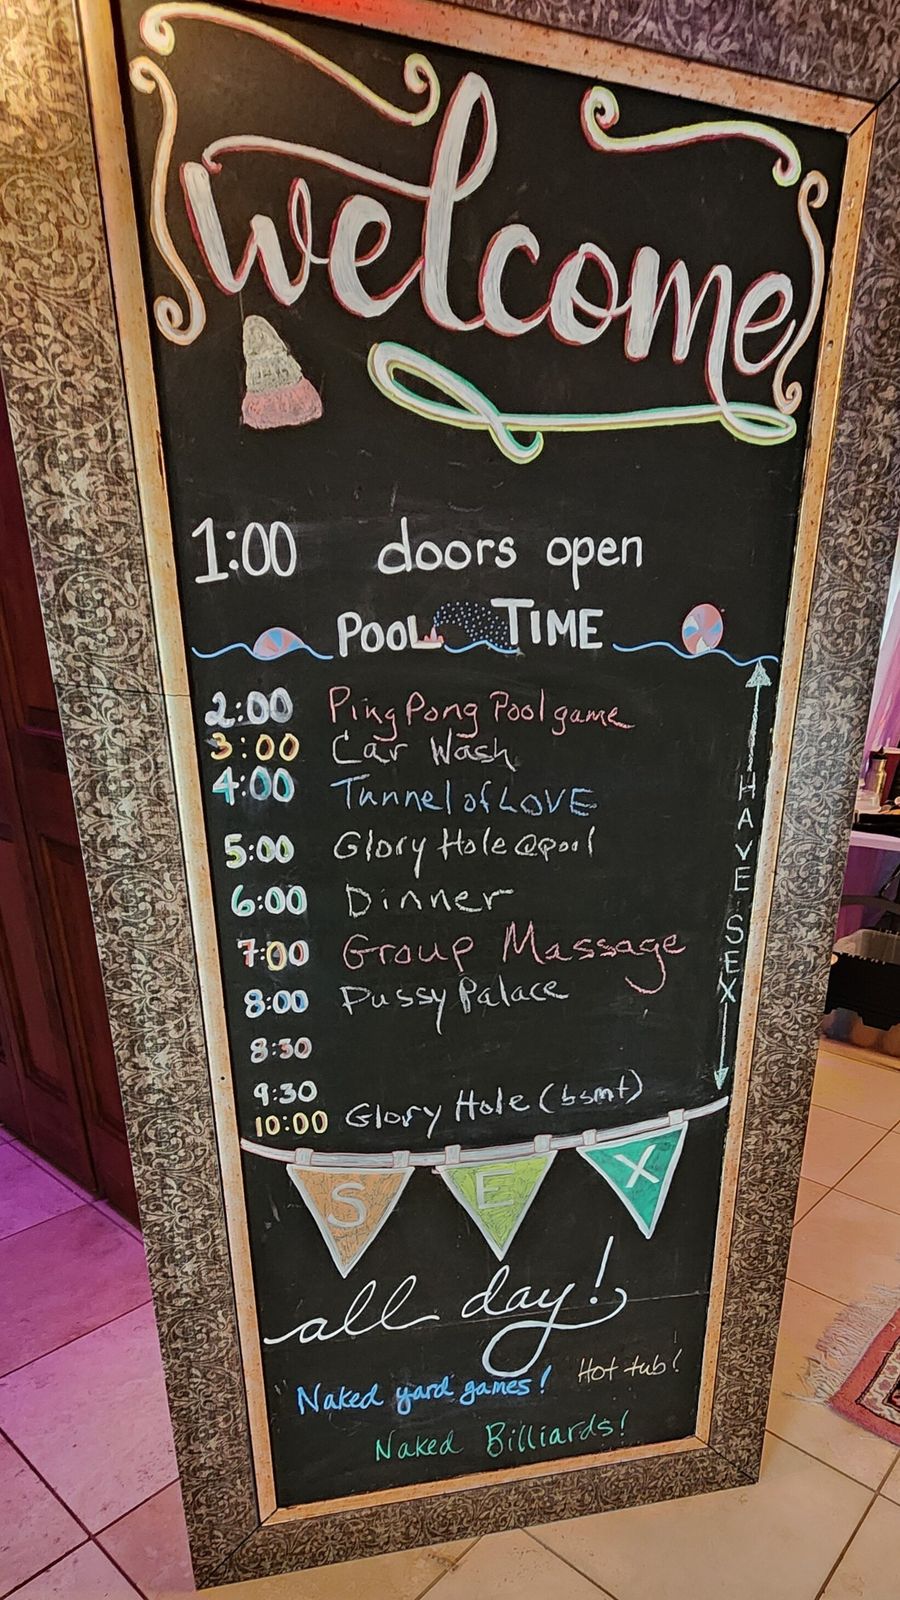 welcome
1:00 doors open
POOL TIME
2:00 Ping Pong Pool game
3:00 Car Wash
4:00 Tunnel of LOVE
5:00 Glory Hole @pool
6:00 Dinner
7:00 Group Massage
8:00 Pussy Palace
8:30
9:30
10:00 Glory Hole (bsmt)
HAVE SEX
SEX
all day!
Naked yard games! Hot tub!
Naked Billiards!